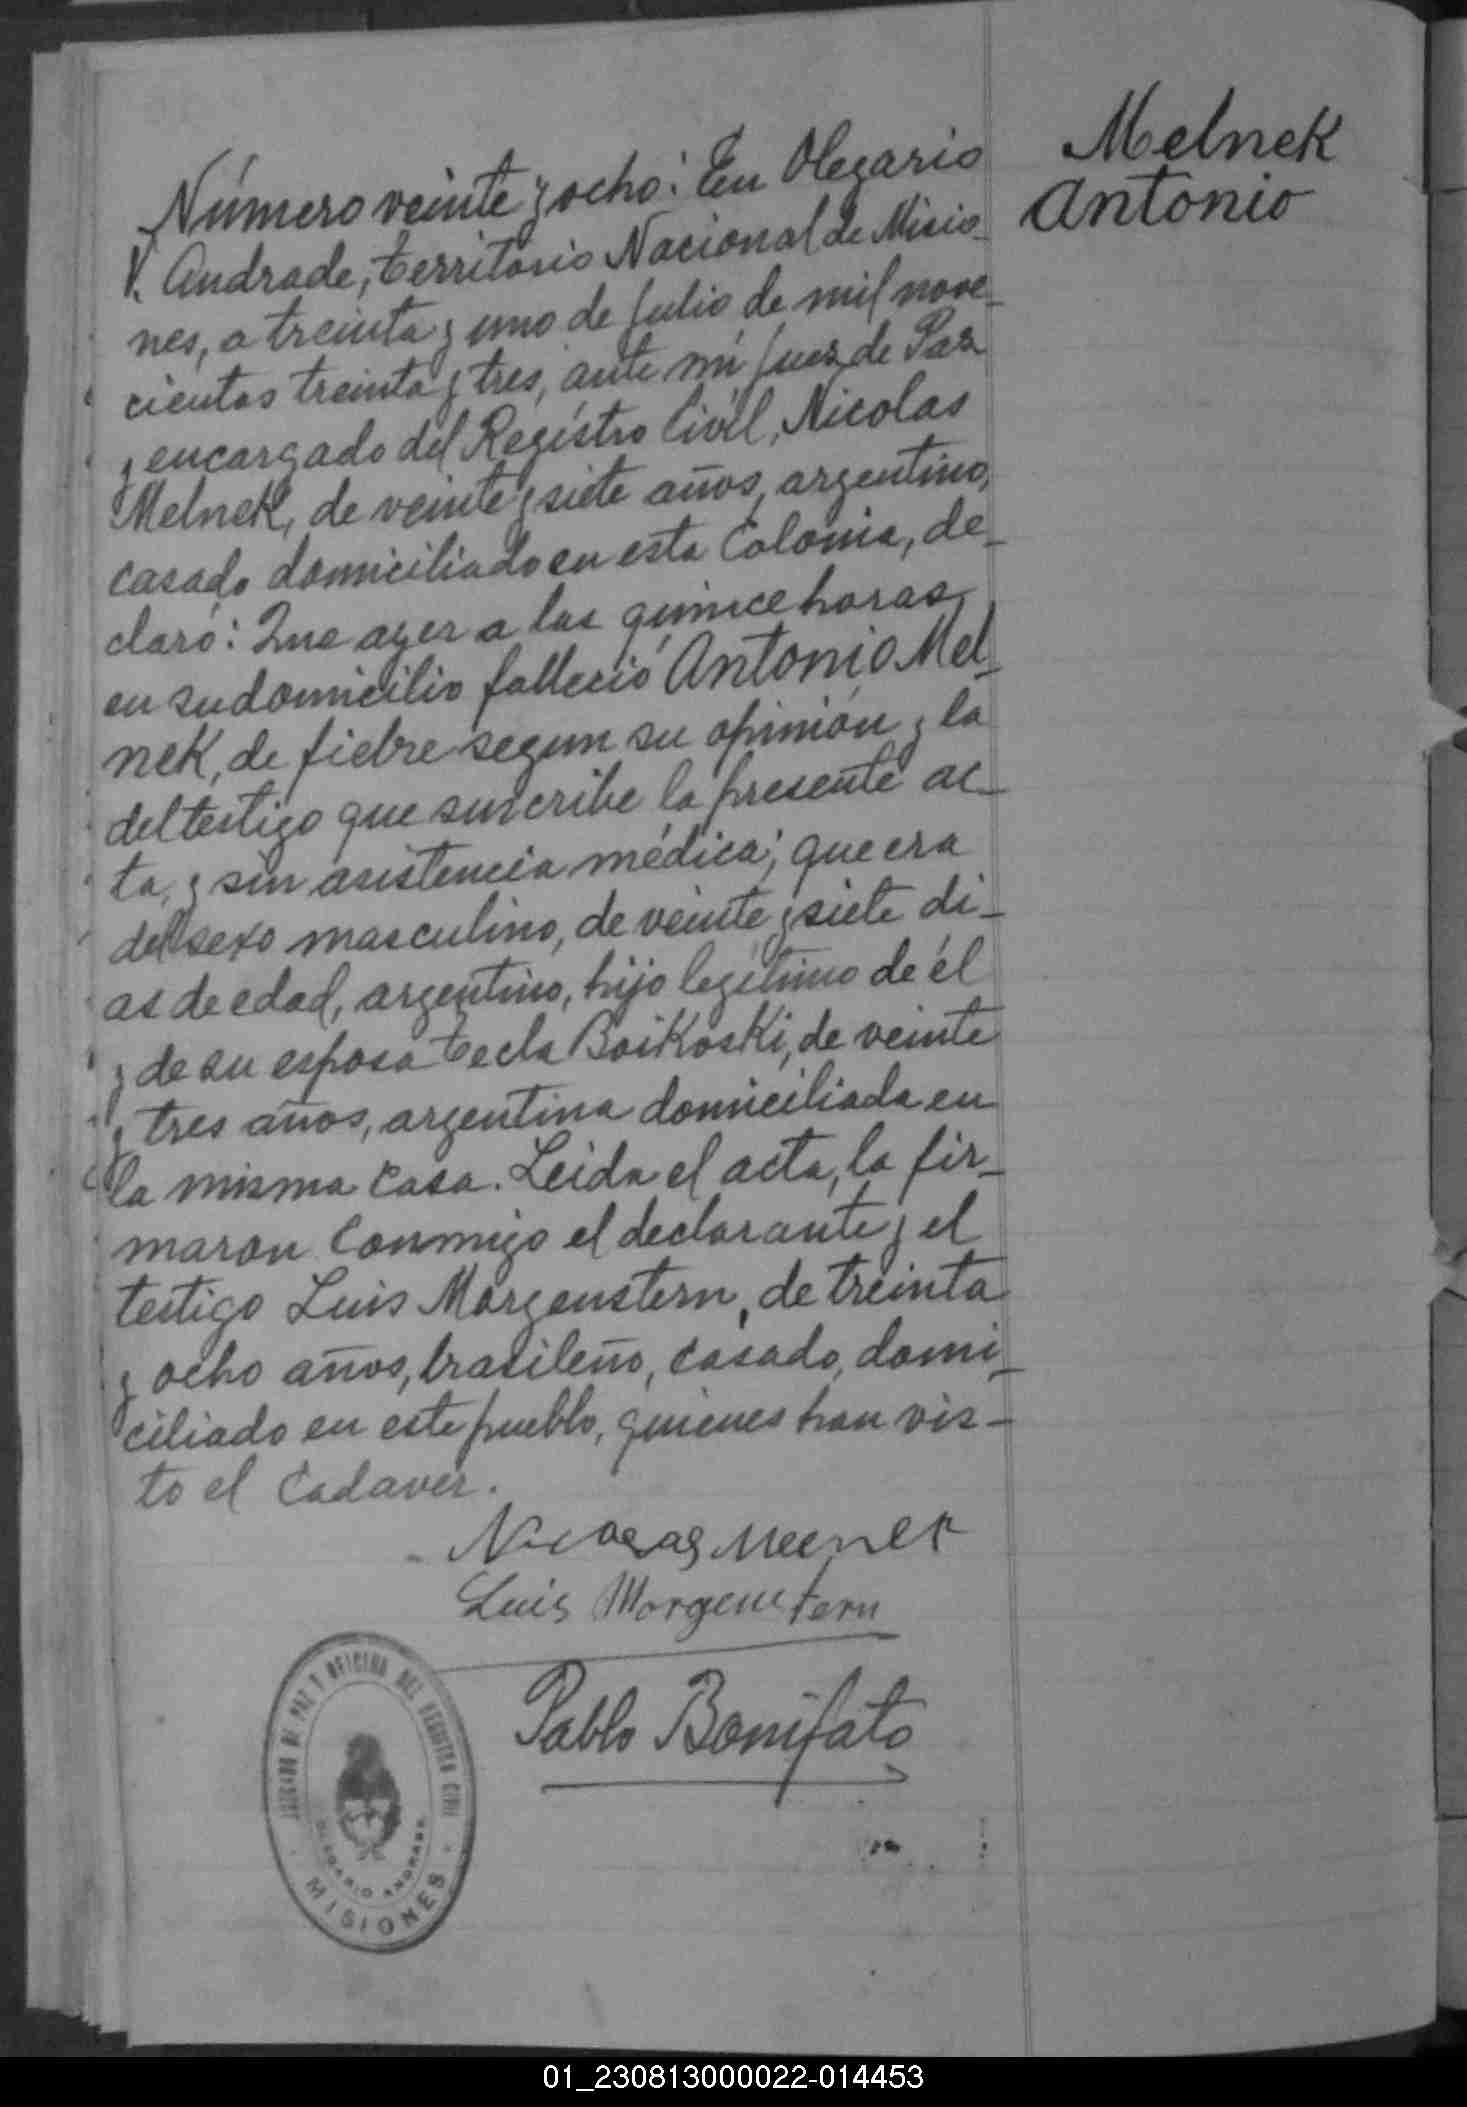 Melnek
Antonio
Número veinte y ocho: En Olegario
V. Andrade, territorio Nacional de Misio-
nes, a treinta y uno de Julio de mil nove-
cientos treinta y tres, ante mí Juez de Paz
y encargado del Registro Civil, Nicolas
Melnek, de veinte y siete años, argentino,
casado domiciliado en esta Colonia, de-
claró: Que ayer a las quince horas
en su domicilio falleció Antonio Mel-
nek, de fiebre segun su opinión y la
del testigo que suscribe la presente ac-
ta, y sin asistencia médica; que era
del sexo masculino, de veinte y siete di-
as de edad, argentino, hijo legítimo de él
y de su esposa tecla Boikoski, de veinte
y tres años, argentina domiciliada en
la misma casa. Leida el acta, la fir-
maron conmigo el declarante y el
testigo Luis Morgenstern, de treinta
y ocho años, brasileño, casado, domi-
ciliado en este pueblo, quienes han vis-
to el cadaver.
Nicolas Melnek
Luis Morgenstern
Pablo Bonifato
JUZGADO DE PAZ Y OFICINA DEL REGISTRO CIVIL
OLEGARIO ANDRADE
MISIONES
01_230813000022-014453